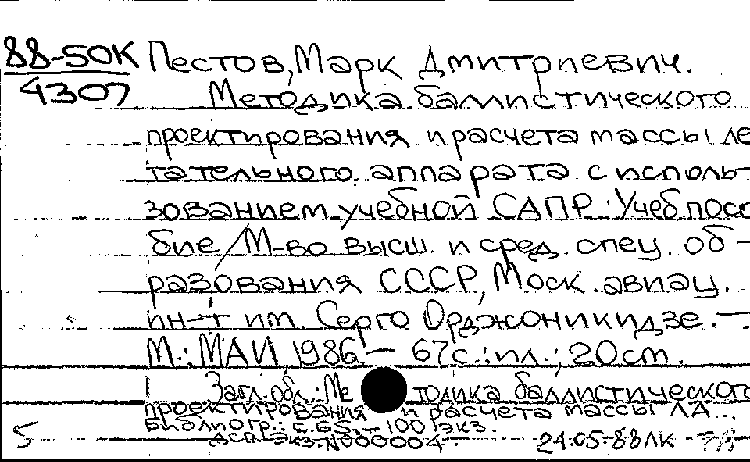 88-50К
4307
Пестов, Марк Дмитриевич.
Методика баллистического
проектирования и расчета массы ле-
тательного аппарата с исполь-
зованием учебной САПР: Учеб. посо-
бие / М-во высш. и сред. спец. об-
разования СССР, Моск. авиац.
ин-т им. Серго Орджоникидзе. —
М.: МАИ 1986. — 67 с.: ил.; 20 см.
Загл. обл.: Методика баллистического
проектирования и расчета массы ЛА.
Библиогр.: с. 65. — 100 экз.
ДСП. Экз. N000004
5 24.05.88 ЛК